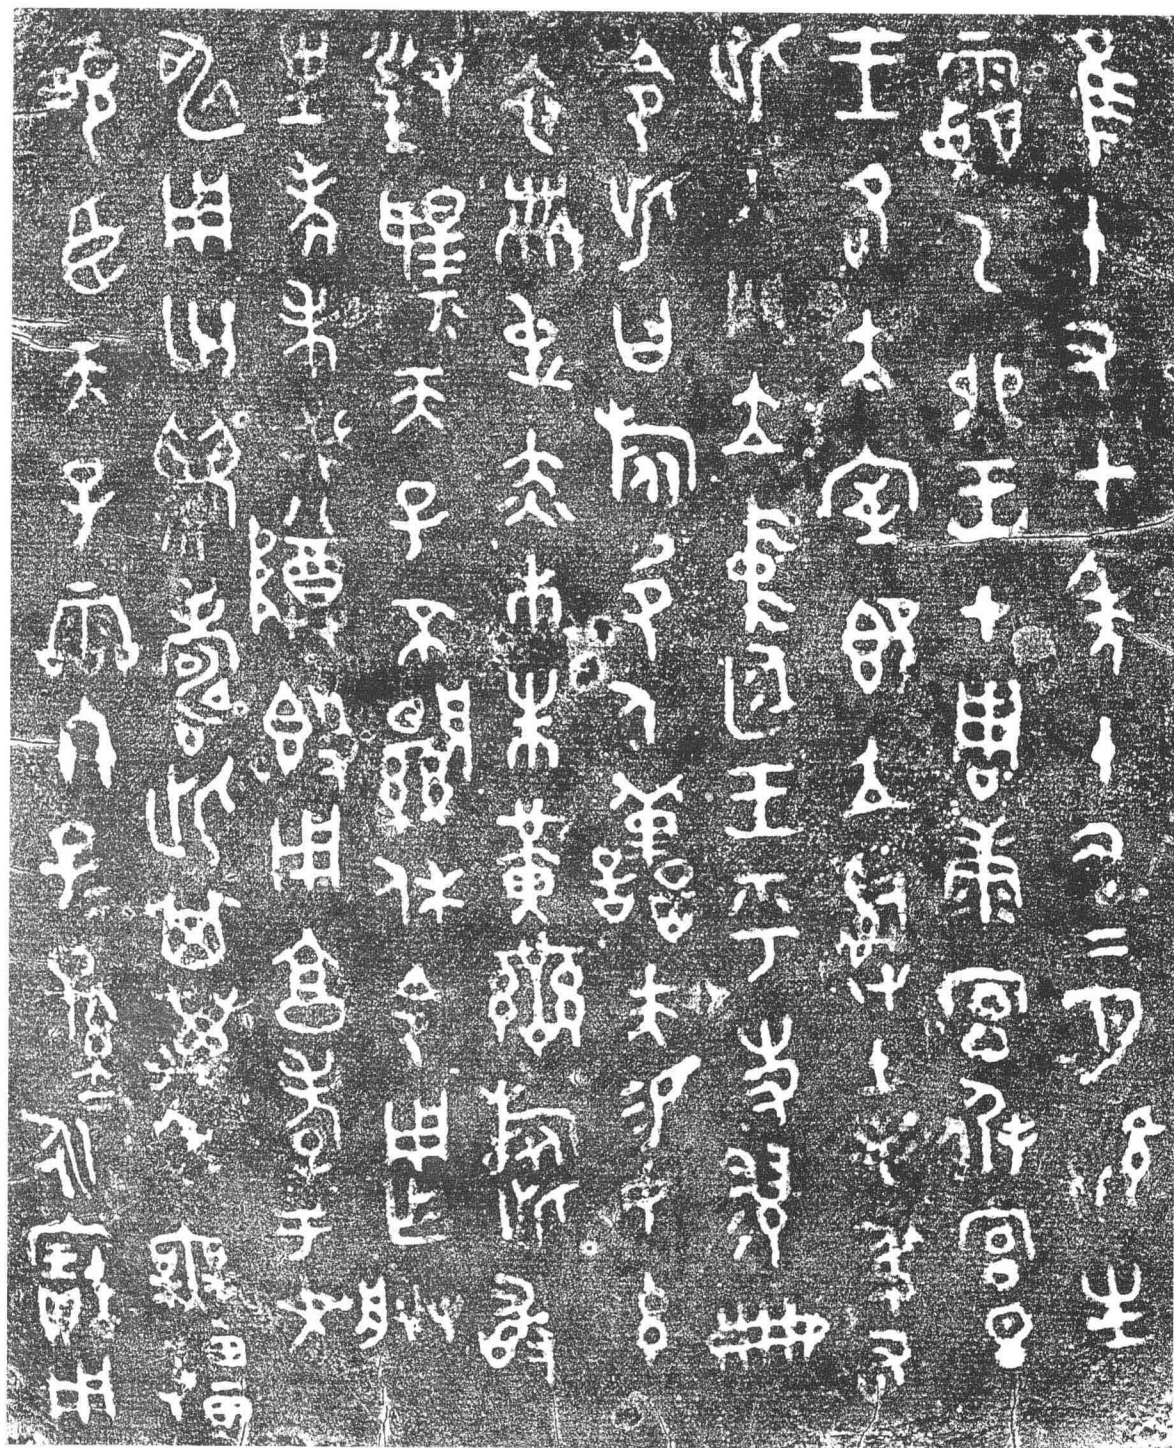 隹十又七年十又二月既生
霸乙卯王才周康宮徲宮旦
王各大室即立𤔲土毛弔右
此入門立中廷王乎史翏冊
令此曰旅邑人善夫易女玄
衣黹屯赤巿朱黃䜌旅此敢
對揚天子不顯休令用乍朕
皇考癸公尊𣪘用享孝于文
申用匄眉壽此其萬年無疆
畯臣天子霝冬子孫永寶用